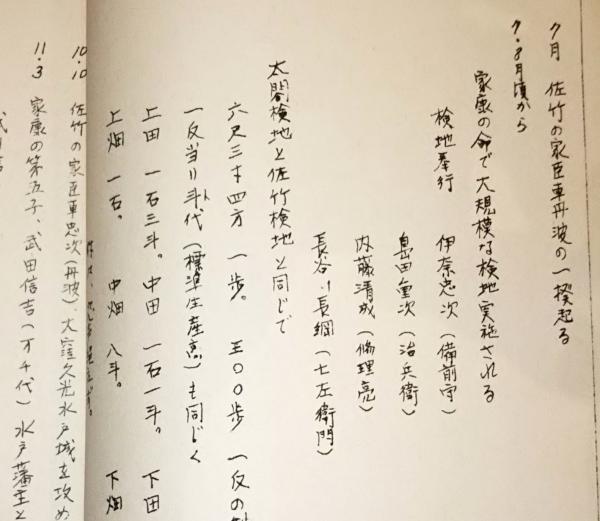 7月 佐竹の家臣車丹波の一揆起る
7・8月頃から
家康の命で大規模な検地実施される
検地奉行 伊奈忠次(備前守)
島田重次(治兵衛)
内藤清成(脩理亮)
長谷川長綱(七左衛門)
太閤検地と佐竹検地と同じで
六尺三寸四方 一歩。 三〇〇歩 一反の
一反当り斗代(標準生産高)も同じく
上田 一石三斗。中田 一石一斗。 下田
上畑 一石。 中畑 八斗。 下畑
10.10 佐竹の家臣車忠次(丹波)、大窪久光水戸城を攻め
11.3 家康の第五子、武田信吉(万千代)水戸藩主と